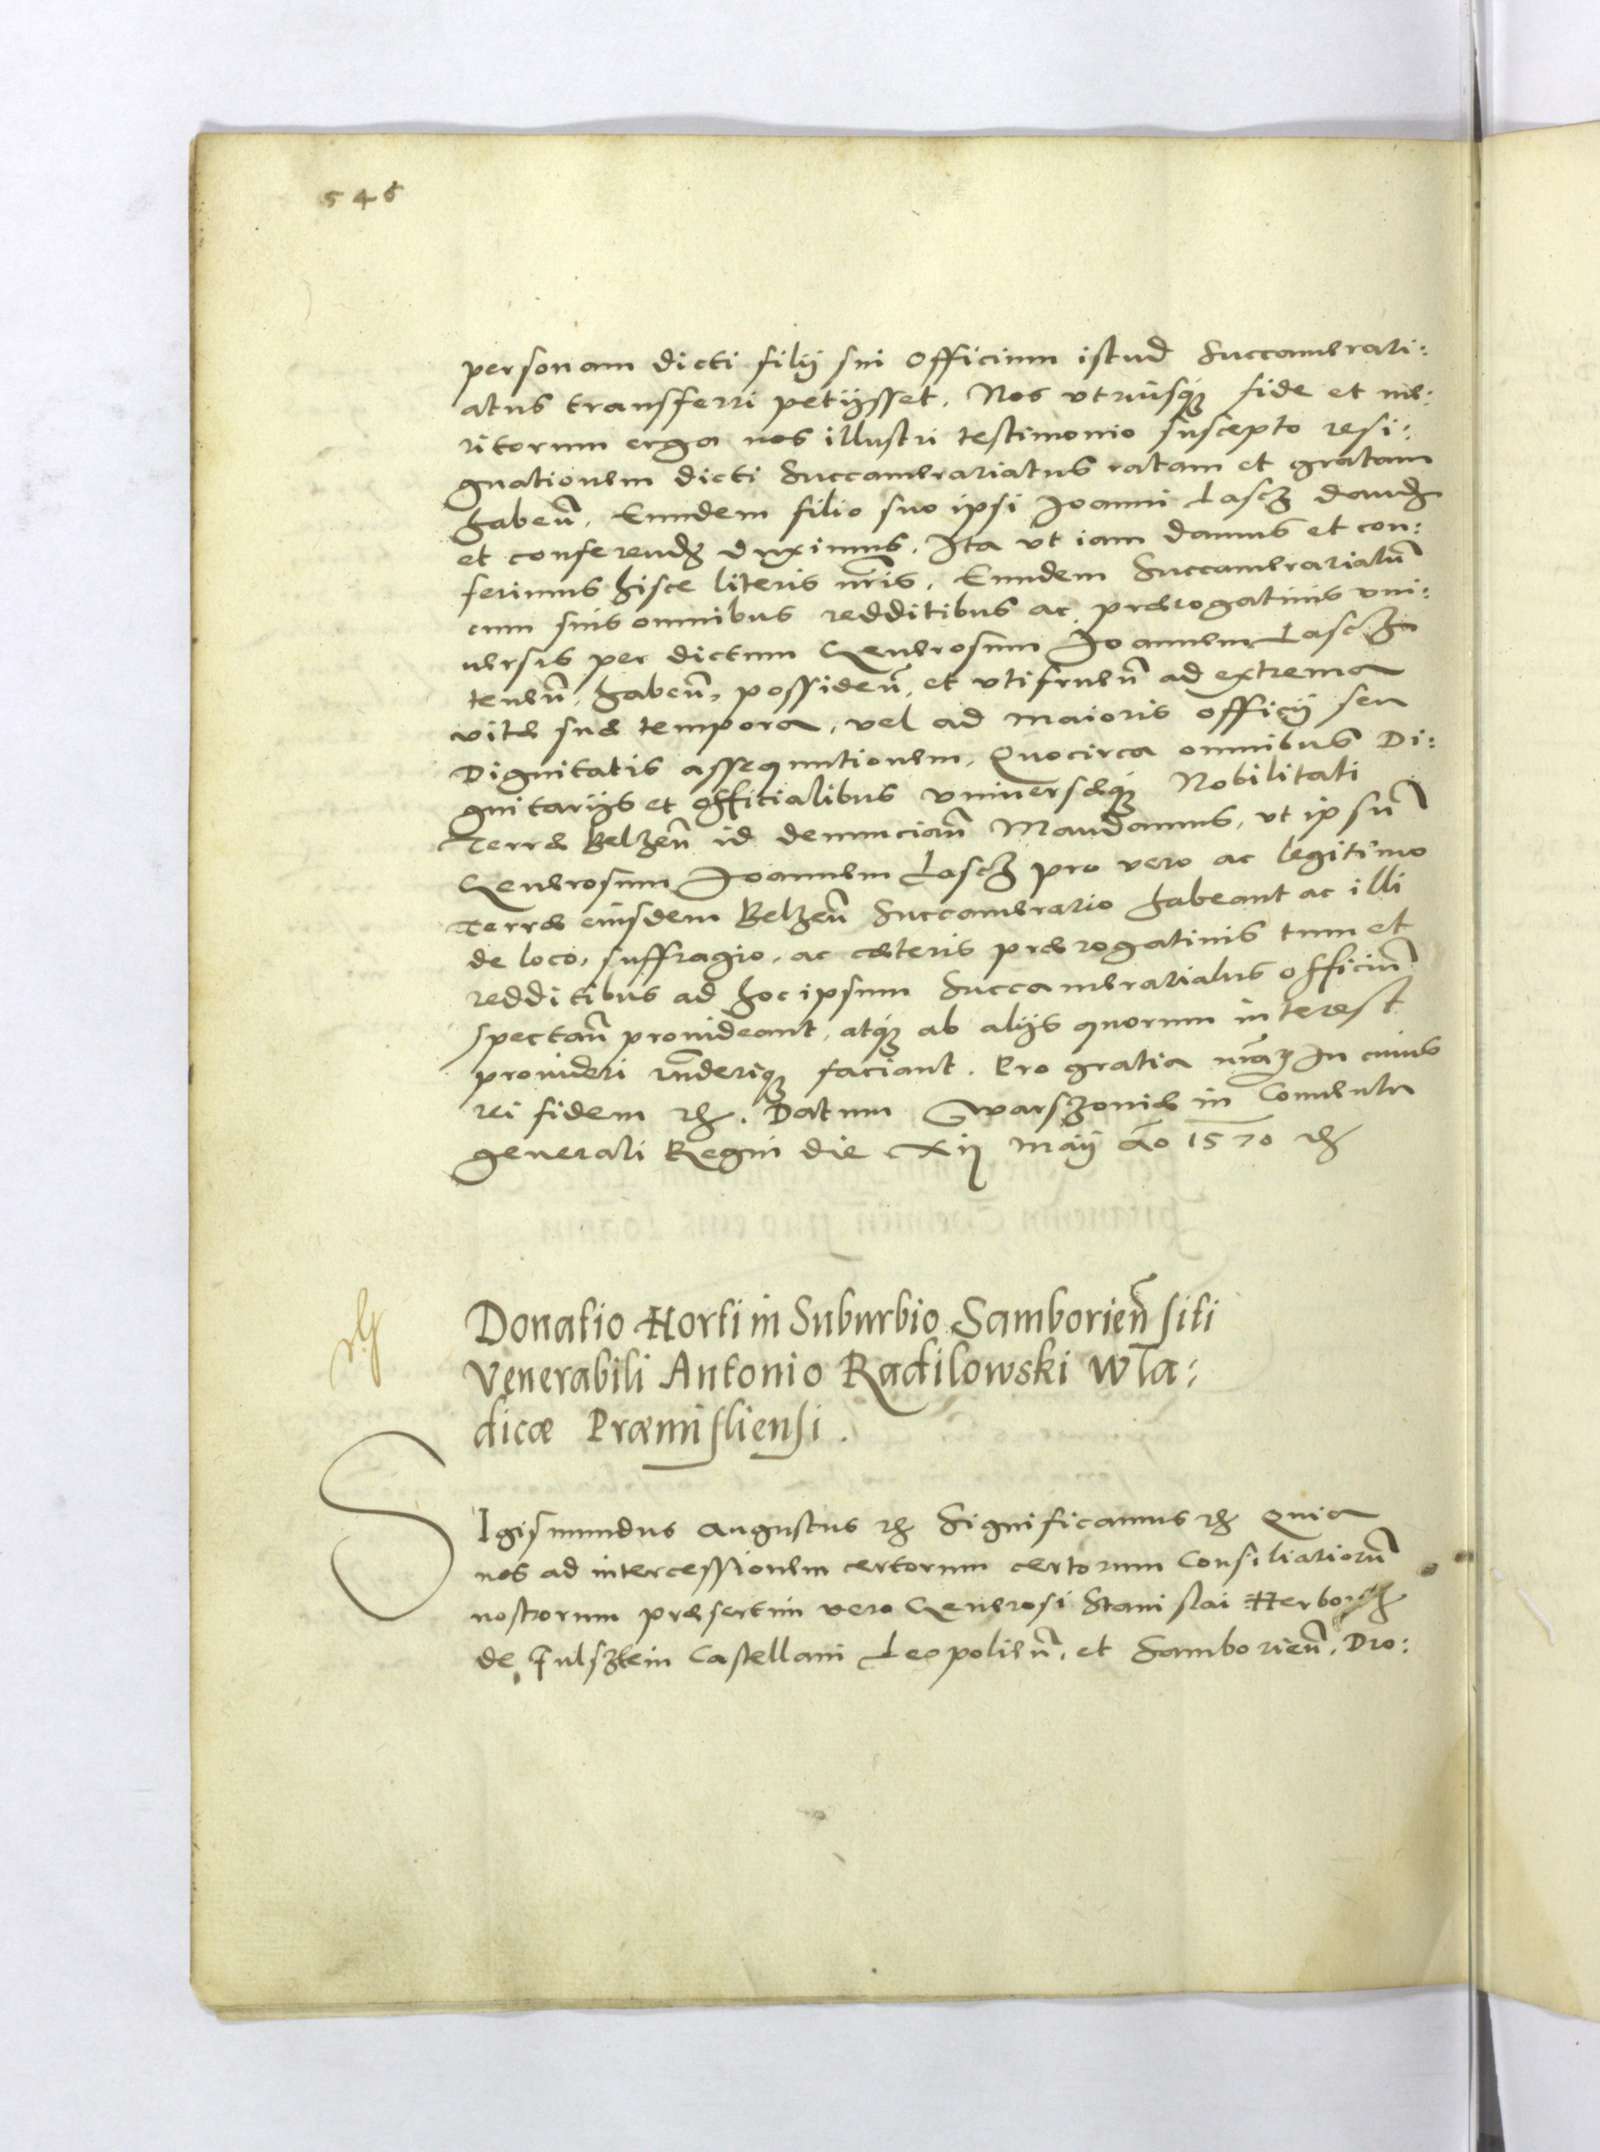 546
personam dicti filij sui Officium istud Succamerari:
atus transferri petijsset. Nos utriusq(ue) fide et me:
ritorum erga nos illustri testimonio suscepto resi:
gnationem dicti Succamerariatus ratam et gratam
habeñ. Eundem filio suo ipsi Joanni Lascz dandũ
et conferendũ duximus. Ita ut iam damus et con:
ferimus hisce literis nr̃is. Eundem Succamerariatũ
cum suis omnibus redditibus ac prærogatiuis vni:
uersis per dictum Generosum Joannem Lascz
teneñ, habeñ, possideñ, et utifrueñ ad extrema
vitæ suæ tempora, vel ad maioris officij seu
Dignitatis assequutionem. Quocirca omnibus Di:
gnitarijs et officialibus vniuersæq(ue) Nobilitati
Terræ Belzeñ id denunciañ Mandamus, ut ipsũ
Generosum Joannem Lascz pro vero ac legitimo
Terræ eiusdem Belzeñ Succamerario habeant ac illi
de loco, suffragio, ac cæteris prærogatiuis tum et
redditibus ad hoc ipsum Succamerariatus officiũ
spectañ prouideant, atq(ue) ab alijs quorum interest
prouideri r̃nderiq(ue) faciant. Pro gratia nr̃a In cuius
rei fidem etc. Datum Warszouiæ in Conuentu
generali Regni die Xij Maij Aõ 1570 etc
Donatio Horti in Suburbio Samborieñ siti
Venerabili Antonio Radilowski Wla:
dicæ Præmisliensi.
SIgismundus Augustus etc Significamus etc Quia
nos ad intercessionem certorum certorum Consiliariorũ
nostrorum præsertim vero Generosi Stanislai Herborth
de Fulsztein Castellani Leopolieñ, et Samborieñ. Dro: